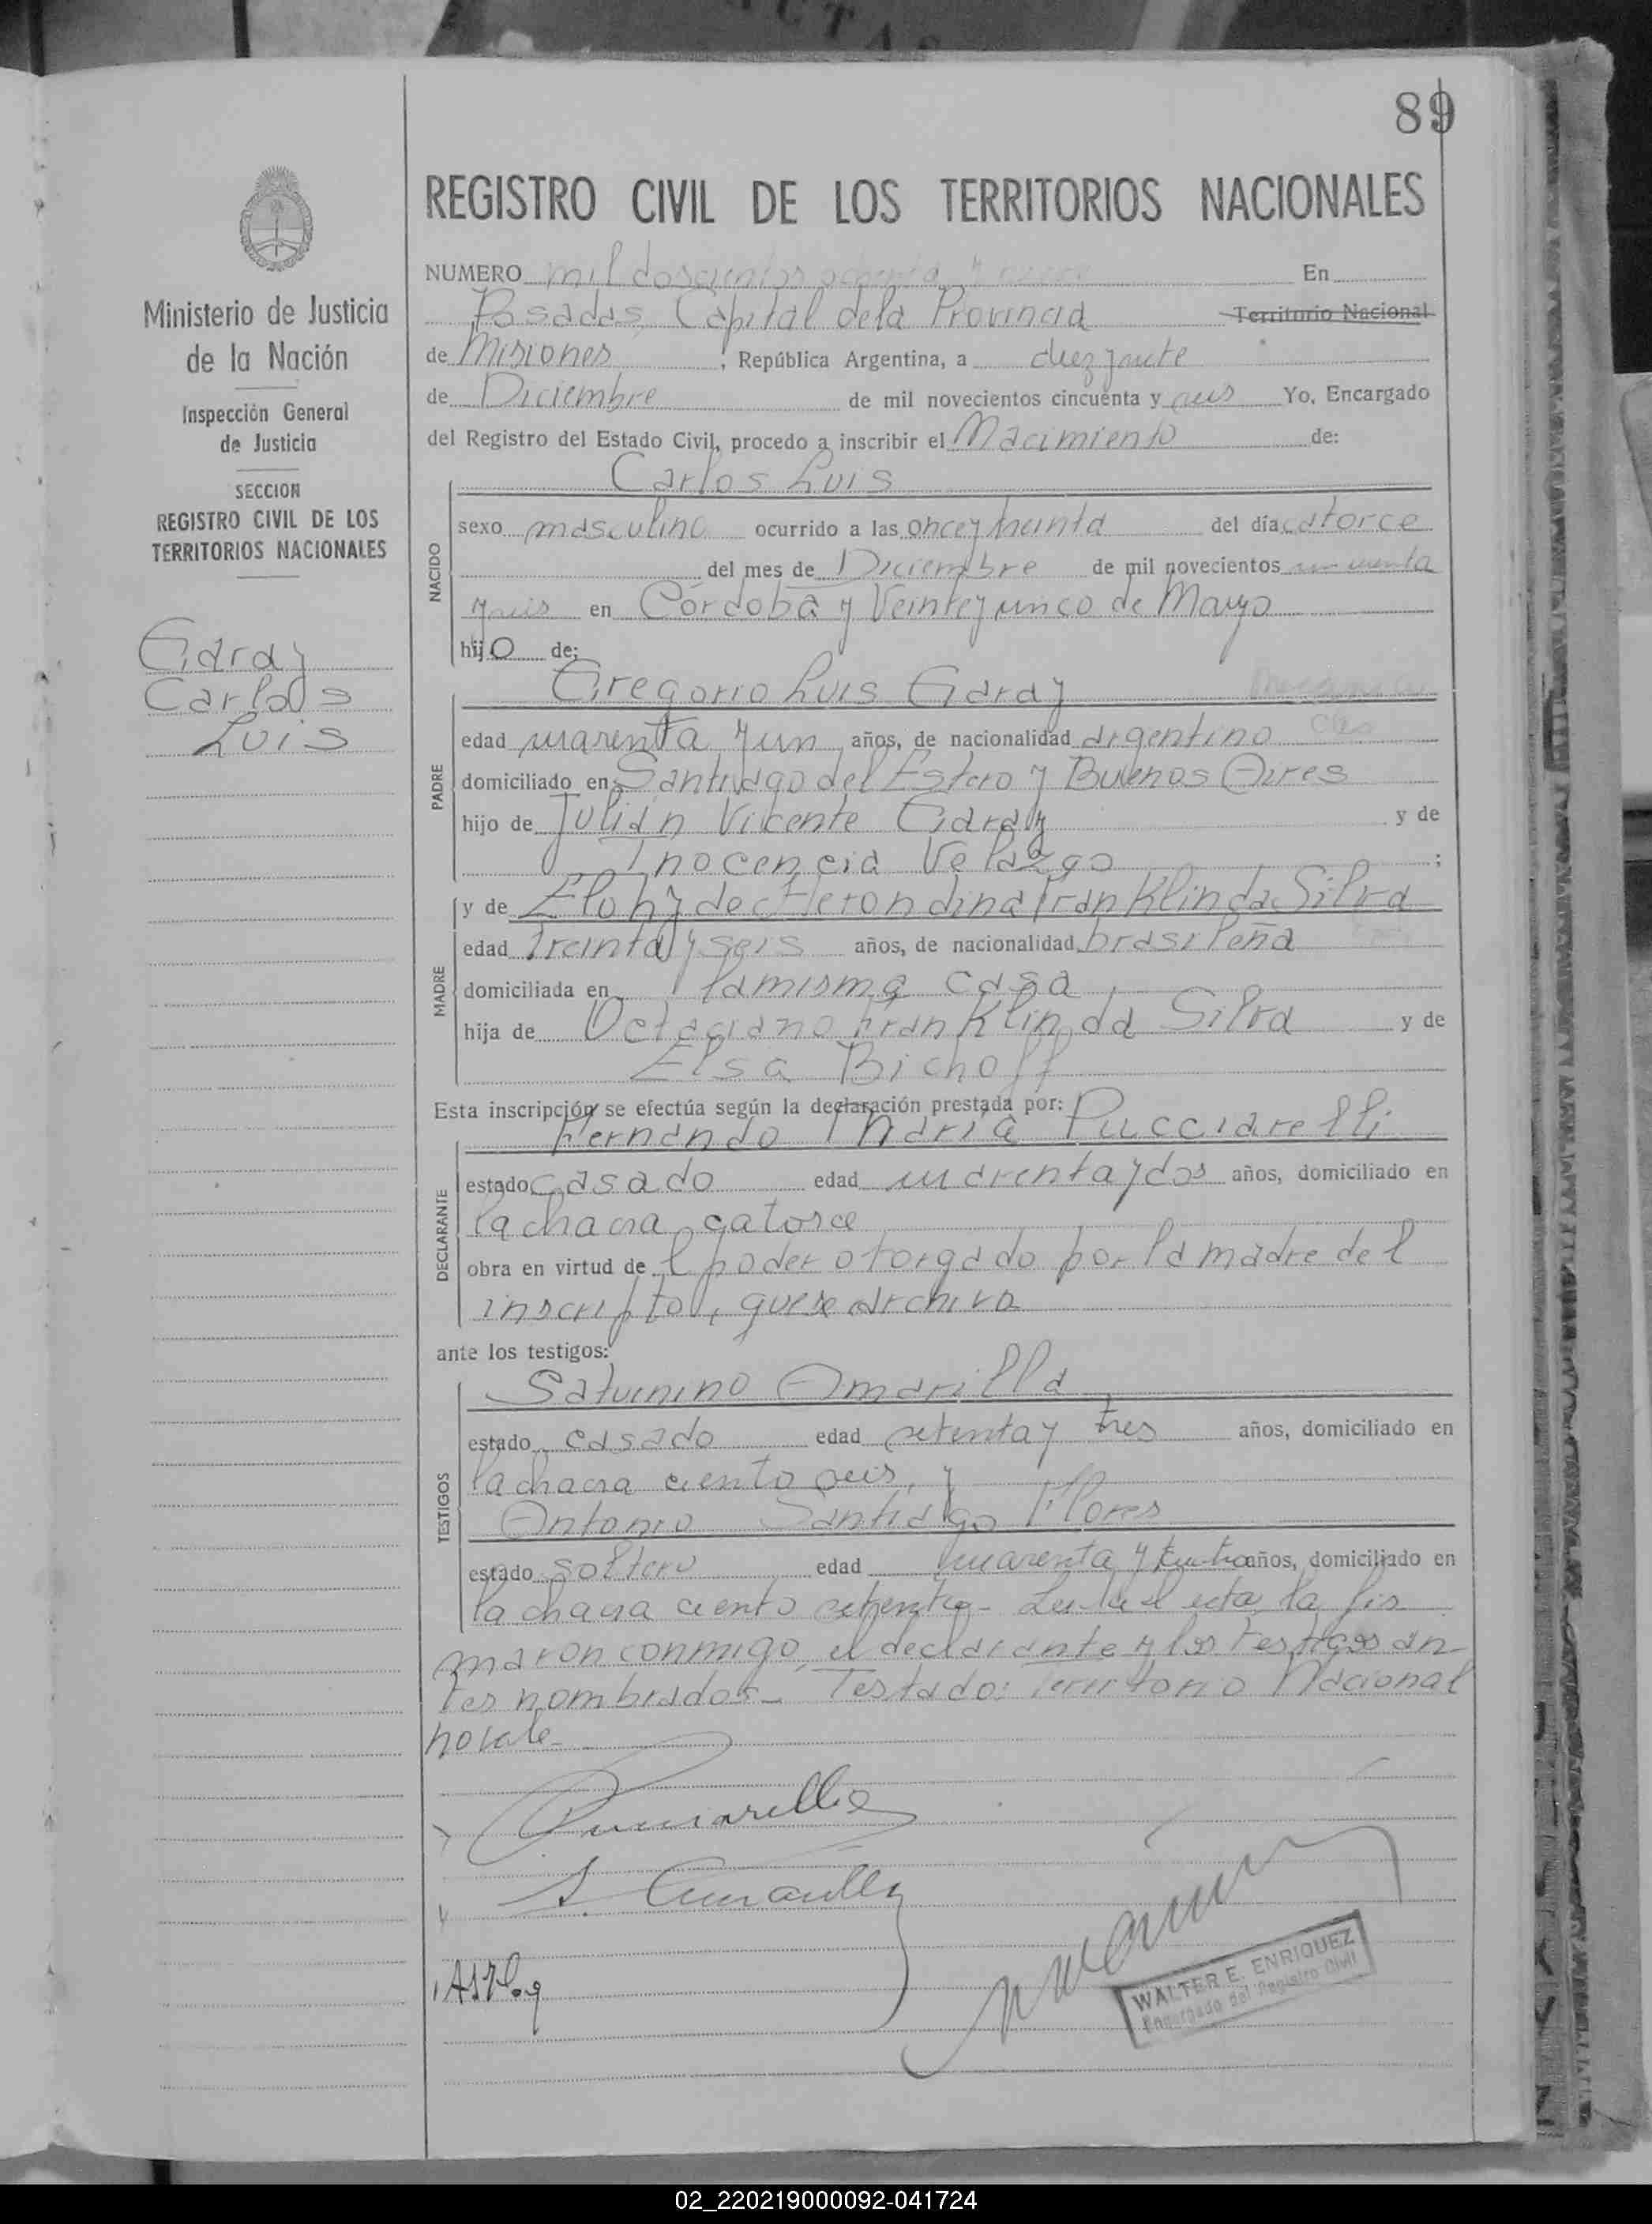 89
REGISTRO CIVIL DE LOS TERRITORIOS NACIONALES
Ministerio de Justicia
de la Nación
Inspección General
de Justicia
SECCION
REGISTRO CIVIL DE LOS
TERRITORIOS NACIONALES
Garay
Carlos
Luis
NUMERO mil doscientos ochenta y nueve En
Posadas, Capital de la Provincia Territorio Nacional
de Misiones, República Argentina, a diez y siete
de Diciembre de mil novecientos cincuenta y seis Yo, Encargado
del Registro del Estado Civil, procedo a inscribir el Nacimiento de:
NACIDO
Carlos Luis
sexo masculino ocurrido a las once y treinta del día catorce
del mes de Diciembre de mil novecientos cincuenta
y seis en Córdoba y Veinte y cinco de Mayo
hijo de:
PADRE
Gregorio Luis Garay
edad cuarenta y un años, de nacionalidad argentino
domiciliado en Santiago del Estero y Buenos Aires
hijo de Julián Vicente Garay y de
Inocencia Velazgo;
MADRE
y de Franklin da Silva
edad treinta y seis años, de nacionalidad brasileña
domiciliada en la misma casa
hija de Octaciano Franklin da Silva y de
Elsa Bichoff
Esta inscripción se efectúa según la declaración prestada por:
DECLARANTE
Hernando María Pucciarelli
estado casado edad cuarenta y dos años, domiciliado en
la chacra catorce
obra en virtud de l poder otorgado por la madre del
inscripto, que se archiva
ante los testigos:
TESTIGOS
Saturnino Amarilla
estado casado edad setenta y tres años, domiciliado en
la chacra ciento seis, y
Antonio Santiago Flores
estado soltero edad cuarenta y cuatro años, domiciliado en
la chacra ciento setenta - Leida el acta, la fir
maron conmigo, el declarante y los testigos an-
tes nombrados - Testado: Territorio Nacional
no vale -
Pucciarelli
S. Amarilla
WALTER E. ENRIQUEZ
Encargado del Registro Civil
02_220219000092-041724